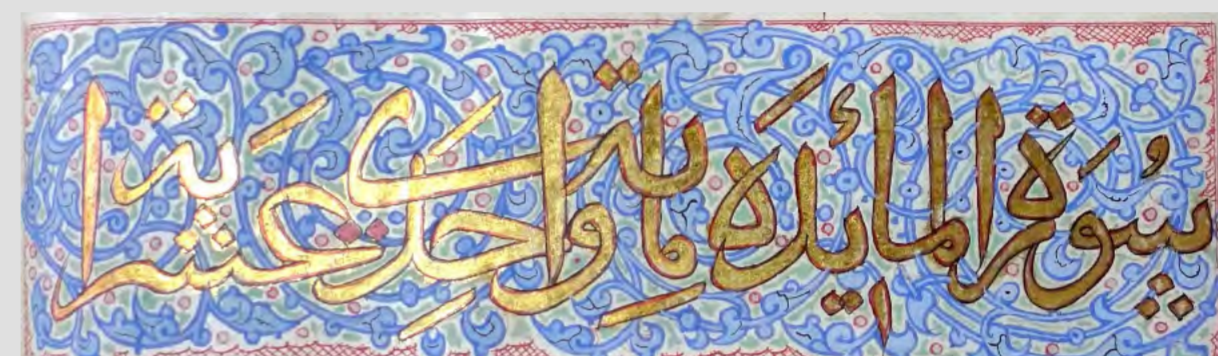 سُورَة المائده مائة واحدى عشر اية